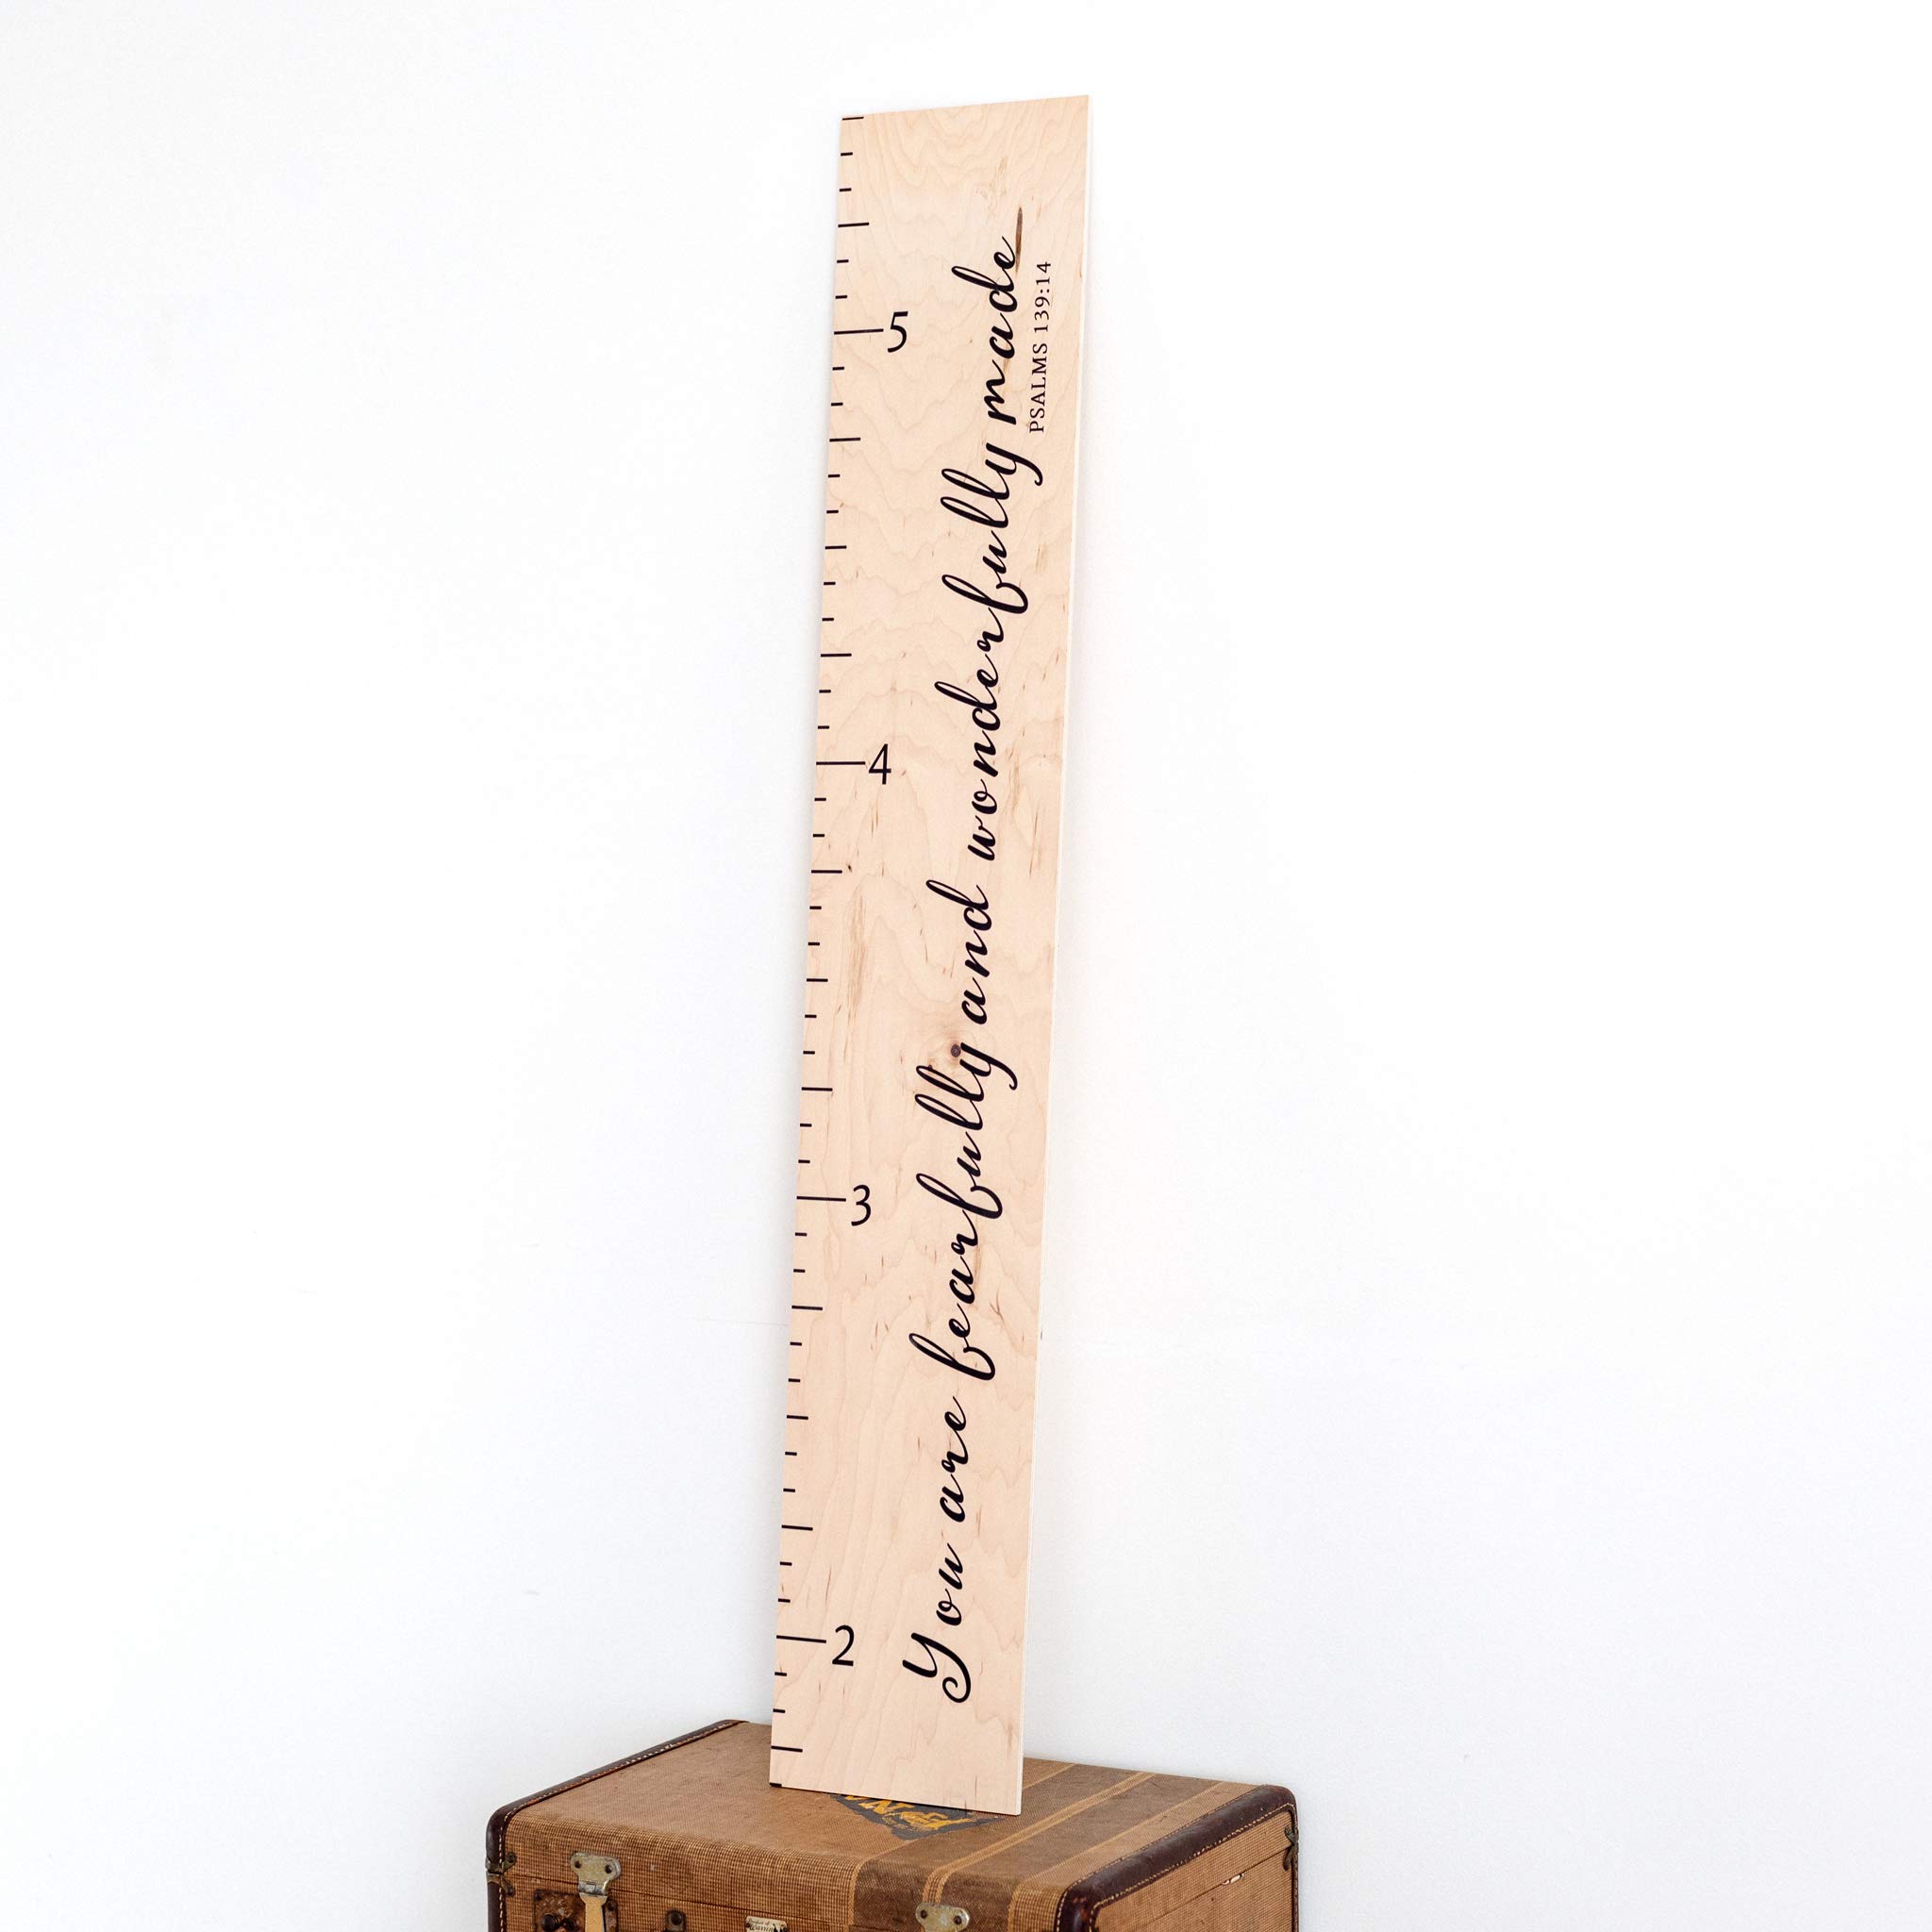 You are fearfully and wonderfully made
PSALMS 139:14
5
4
3
2